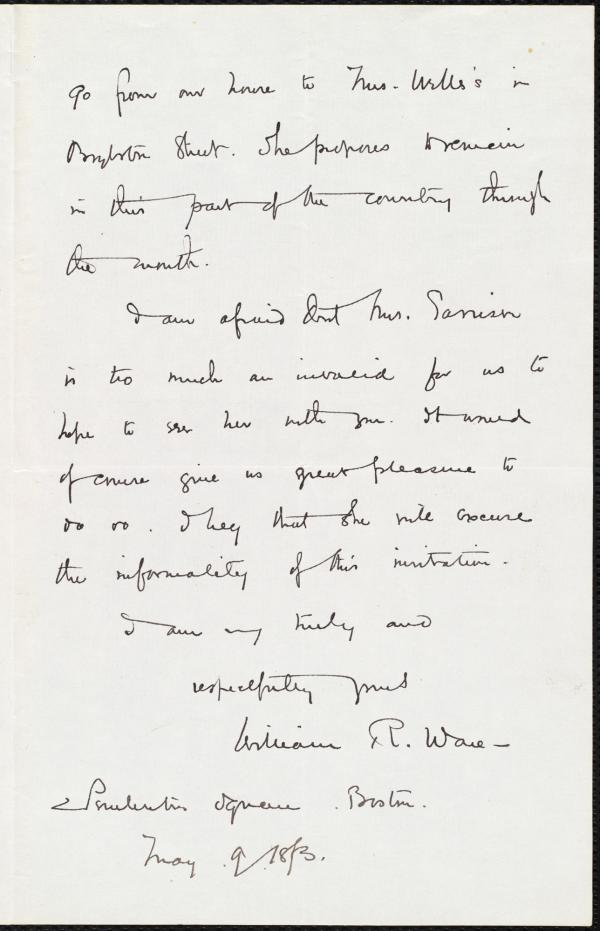 go from our house to Mrs. Wells's in
Boylston Street. She proposes to remain
in this part of the country through
the month.
I am afraid that Mrs. Garrison
is too much an invalid for us to
hope to see her with you. It would
of course give us great pleasure to
do so. I beg that she will excuse
the informality of this invitation.
I am very truly and
respectfully yours
William R. Ware
Square. Boston.
May 9 1873.